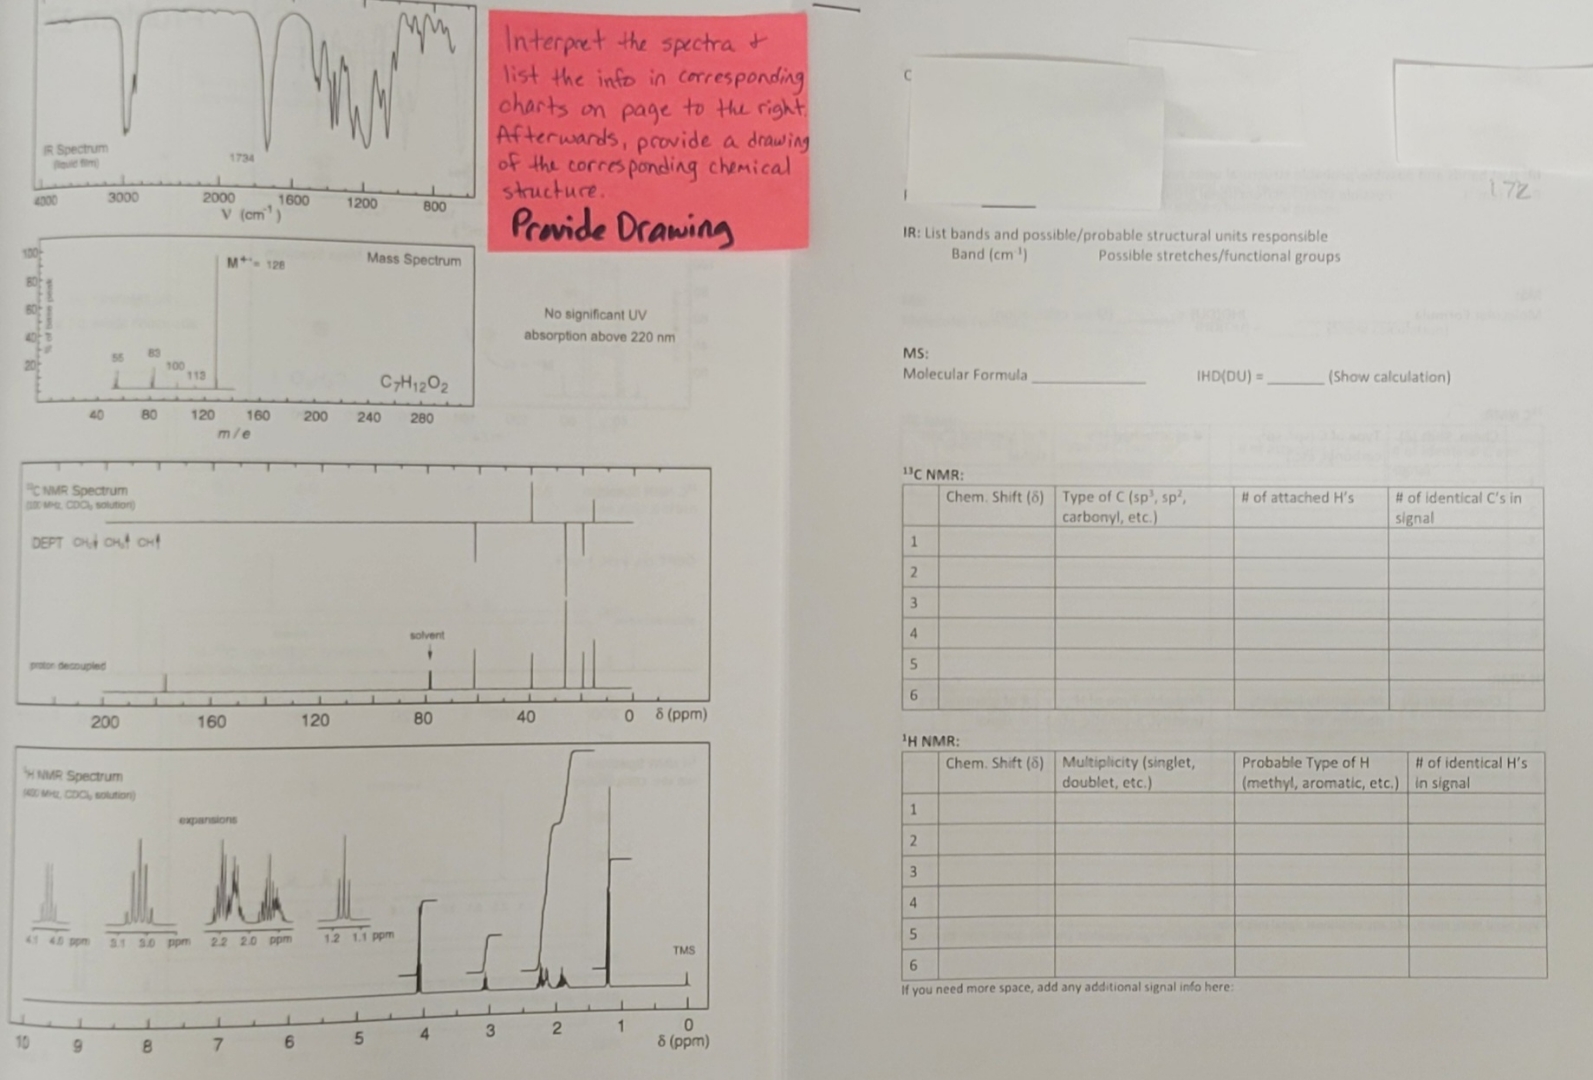 Interpret the spectra &
list the info in corresponding
charts on page to the right.
Afterwards, provide a drawing
of the corresponding chemical
structure.
Provide Drawing
IR Spectrum
(liquid film)
1734
4000 3000 2000 1600 1200 800
V (cm⁻¹)
100
80
60
40
20
% of base peak
M⁺·= 128
Mass Spectrum
55 83 100 113
C₇H₁₂O₂
40 80 120 160 200 240 280
m/e
No significant UV
absorption above 220 nm
¹³C NMR Spectrum
(100 MHz, CDCl₃ solution)
DEPT CH₂↓ CH₃↑ CH↑
solvent
proton decoupled
200 160 120 80 40 0 δ (ppm)
¹H NMR Spectrum
(400 MHz, CDCl₃ solution)
expansions
4.1 4.0 ppm 3.1 3.0 ppm 2.2 2.0 ppm 1.2 1.1 ppm
TMS
10 9 8 7 6 5 4 3 2 1 0
δ (ppm)
C
172
IR: List bands and possible/probable structural units responsible
Band (cm⁻¹) Possible stretches/functional groups
MS:
Molecular Formula ____________ IHD(DU) = ______ (Show calculation)
¹³C NMR:
Chem. Shift (δ) Type of C (sp³, sp², carbonyl, etc.) # of attached H's # of identical C's in signal
1
2
3
4
5
6
¹H NMR:
Chem. Shift (δ) Multiplicity (singlet, doublet, etc.) Probable Type of H (methyl, aromatic, etc.) # of identical H's in signal
1
2
3
4
5
6
If you need more space, add any additional signal info here: